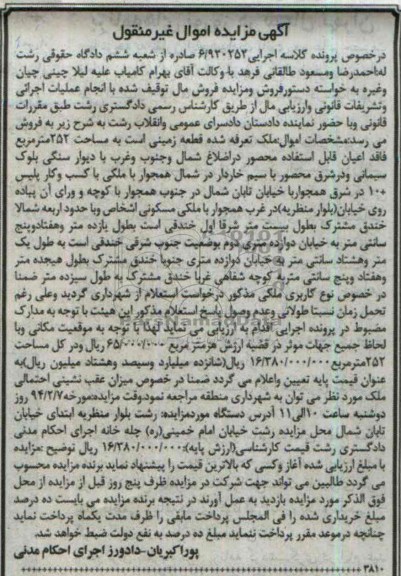 آگهی مزایده اموال غیرمنقول
درخصوص پرونده کلاسه اجرایی۶/۹۳۰۲۵۳ صادره از شعبه ششم دادگاه حقوقی رشت
له:احمدرضا ومسعود طالقانی فرهد با وکالت آقای بهرام کامیاب علیه لیلا چینی چیان
وغیره به خواسته دستورفروش ومزایده فروش مال توقیف شده با انجام عملیات اجرائی
وتشریفات قانونی وارزیابی مال از طریق کارشناس رسمی دادگستری رشت طبق مقررات
قانونی وبا حضور نماینده دادستان دادسرای عمومی وانقلاب رشت به شرح زیر به فروش
می رسد:مشخصات اموال:ملک تعرفه شده قطعه زمینی است به مساحت ۲۵۲مترمربع
فاقد اعیان قابل استفاده محصور دراضلاع شمال وجنوب وغرب با دیوار سنگی بلوک
سیمانی ودرشرق محصور با سیم خاردار در شمال همجوار با ملکی با کسب وکار پلیس
+۱۰ در شرق همجوربا خیابان تابان شمال در جنوب همجوار با کوچه و ورای آن پیاده
روی خیابان(بلوار منظریه)در غرب همجوار با ملکی مسکونی اشخاص وبا حدود اربعه شمالا
خندق مشترک بطول بیست متر شرقا اول خندقی است بطول یازده متر وهفتادوپنج
سانتی متر به خیابان دوازده متری دوم بوضعیت جنوب شرقی خندقی است به طول یک
متر وهشتاد سانتی متر به خیابان دوازده متری جنوبا خندق مشترک بطول هیجده متر
وهفتاد وپنج سانتی متربه کوچه شفاهی غربا خندق مشترک به طول سیزده متر ضمنا
در خصوص نوع کاربری ملکی مذکور درخواست استعلام از شهرداری گردید وعلی رغم
تحمل زمان نسبتا طولانی وعدم وصول پاسخ استعلام مذکور این هیئت با توجه به مدارک
مضبوط در پرونده اجرایی اقدام به ارزیابی می نماید لهذا با توجه به موقعیت مکانی وبا
لحاظ جمیع جهات موثر در قضیه ارزش هرمتر مربع ۶۵/۰۰۰/۰۰۰ ریال ودر کل مساحت
۲۵۲مترمربع۱۶/۳۸۰/۰۰۰/۰۰۰ ریال(شانزده میلیارد وسیصد وهشتاد میلیون ریال)به
عنوان قیمت پایه تعیین واعلام می گردد ضمنا در خصوص میزان عقب نشینی احتمالی
ملک مورد نظر می توان به شهرداری منطقه مراجعه نمود.وقت مزایده:مورخه۹۴/۲/۷ روز
دوشنبه ساعت ۱۰الی۱۱ آدرس دستگاه موردمزایده: رشت بلوار منظریه ابتدای خیابان
تابان شمال محل مزایده رشت خیابان امام خمینی(ره) چله خانه اجرای احکام مدنی
دادگستری رشت قیمت کارشناسی(ارزش پایه):۱۶/۳۸۰/۰۰۰/۰۰۰ ریال توضیح :مزایده
با مبلغ ارزیابی شده آغاز وکسی که بالاترین قیمت را پیشنهاد نماید برنده مزایده محسوب
می گردد طالبین می تواند جهت شرکت در مزایده ظرف پنج روز قبل از مزایده از محل
فوق الذکر مورد مزایده بازدید به عمل آورند در نتیجه برنده مزایده می بایست ده درصد
مبلغ خریداری شده را فی المجلس پرداخت مابقی را ظرف مدت یکماه پرداخت نماید
چنانچه درموعد مقرر پرداخت ننماید مبلغ ده درصد به نفع دولت ضبط خواهد شد.
پوراکبریان -دادورز اجرای احکام مدنی
۳۸۱۰